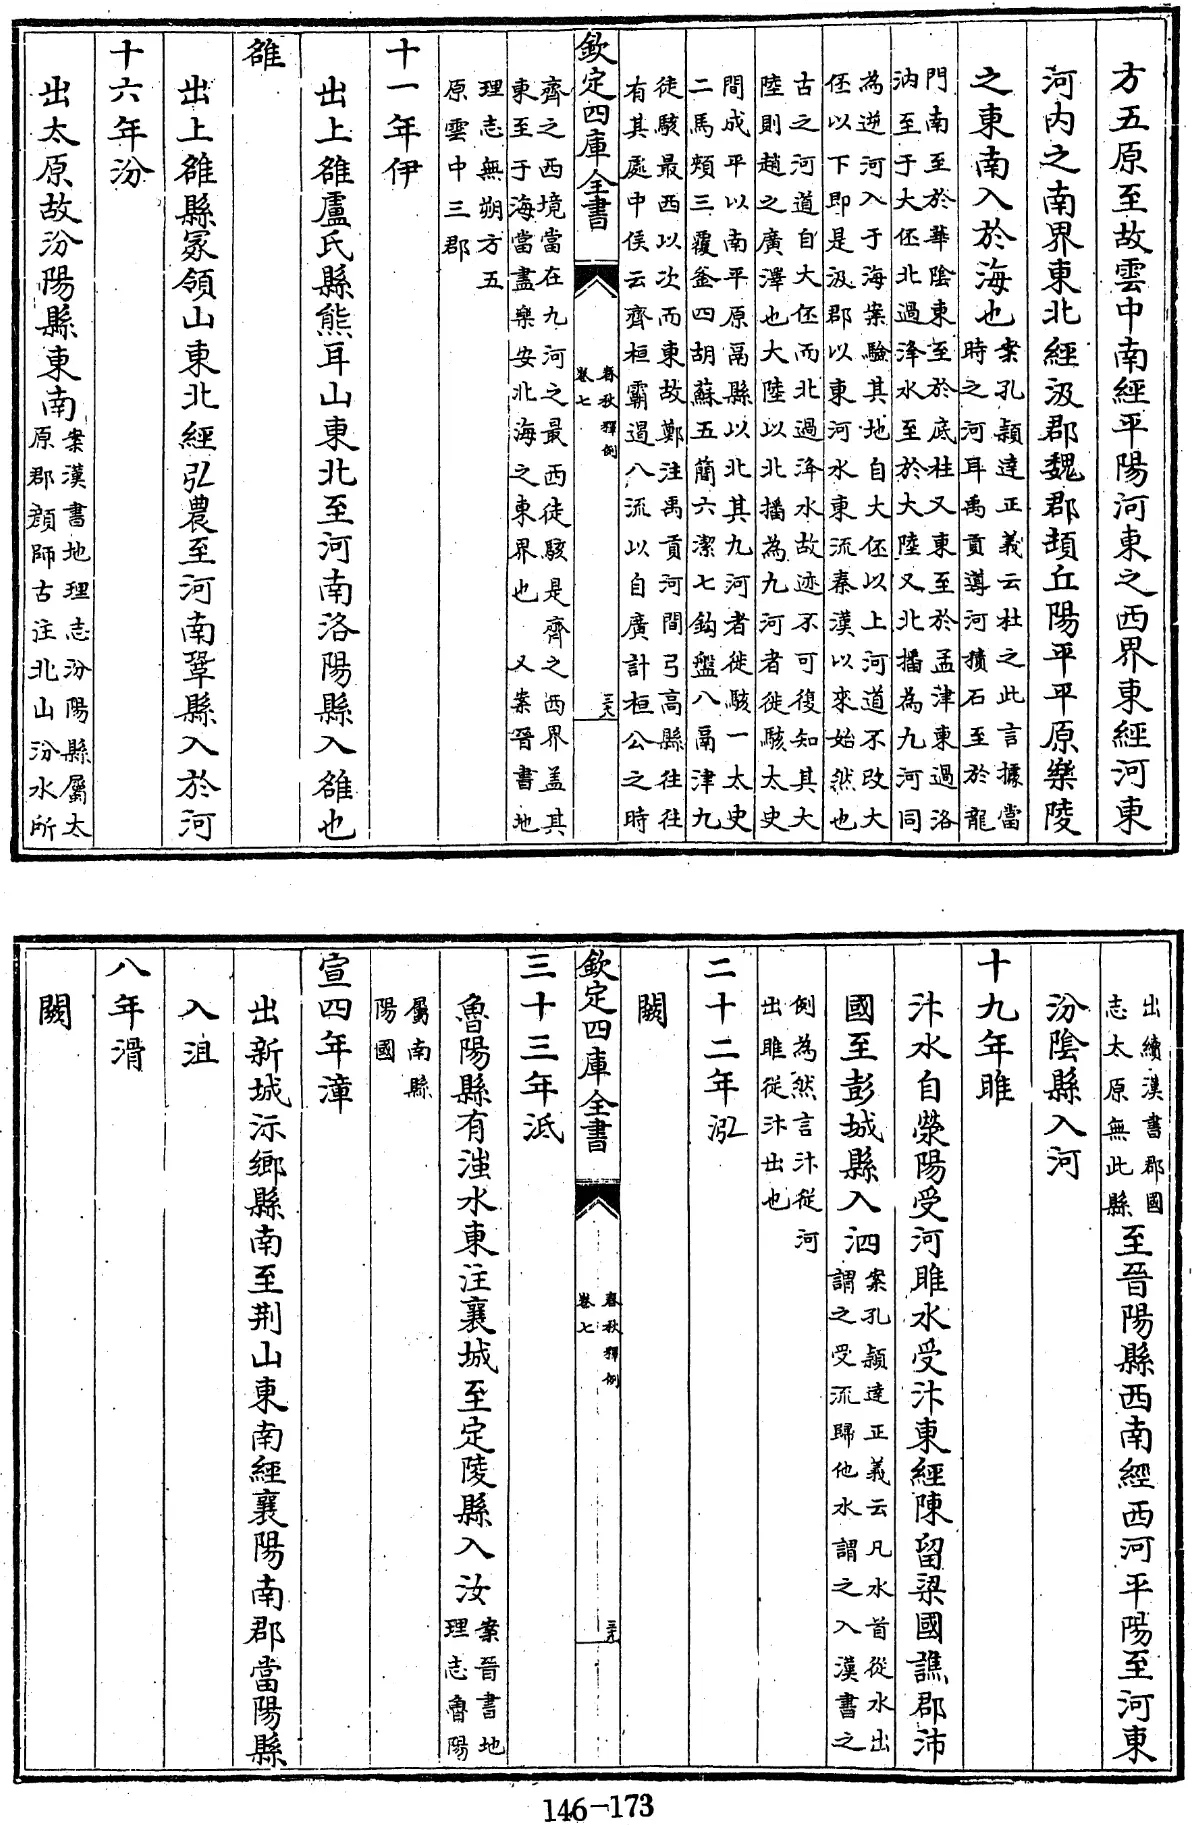 方五原至故雲中南經平陽河東之西界東經河東
河内之南界東北經汲郡魏郡頓丘陽平平原樂陵
之東南入於海也案孔穎達正義云杜之此言據當
時之河耳禹貢導河積石至於龍
門南至於華陰東至於底柱又東至於孟津東過洛
汭至于大伾北過洚水至於大陸又北播為九河同
為逆河入于海案驗其地自大伾以上河道不改大
伾以下即是汲郡以東河水東流秦漢以來始然也
古之河道自大伾而北過洚水故迹不可復知其大
陸則趙之廣澤也大陸以北播為九河者徒駭太史
間成平以南平原鬲縣以北其九河者徙駭一太史
二馬頰三覆釜四胡蘇五簡六潔七鈎盤八鬲津九
徒駭最西以次而東故鄭注禹貢河間弓高縣往往
有其處中侯云齊桓霸遏八流以自廣計桓公之時
欽定四庫全書
春秋釋例
卷七
三六
齊之西境當在九河之最西徒駭是齊之西界盖其
東至于海當盡樂安北海之東界也 又案晉書地
理志無朔方五
原雲中三郡
十一年伊
出上雒盧氏縣熊耳山東北至河南洛陽縣入雒也
雒
出上雒縣冡領山東北經弘農至河南鞏縣入於河
十六年汾
出太原故汾陽縣東南案漢書地理志汾陽縣屬太
原郡顔師古注北山汾水所
出續漢書郡國
志太原無此縣至晉陽縣西南經西河平陽至河東
汾陰縣入河
十九年睢
汴水自滎陽受河睢水受汴東經陳留梁國譙郡沛
國至彭城縣入泗案孔穎達正義云凡水首從水出
謂之受流歸他水謂之入漢書之
例為然言汴從河
出睢從汴出也
二十二年泓
闕
欽定四庫全書
春秋釋例
卷七
三十三年泜
魯陽縣有滍水東注襄城至定陵縣入汝案晉書地
理志魯陽
屬南縣
陽國
宣四年漳
出新城沶鄉縣南至荆山東南經襄陽南郡當陽縣
入沮
八年滑
闕
146-173